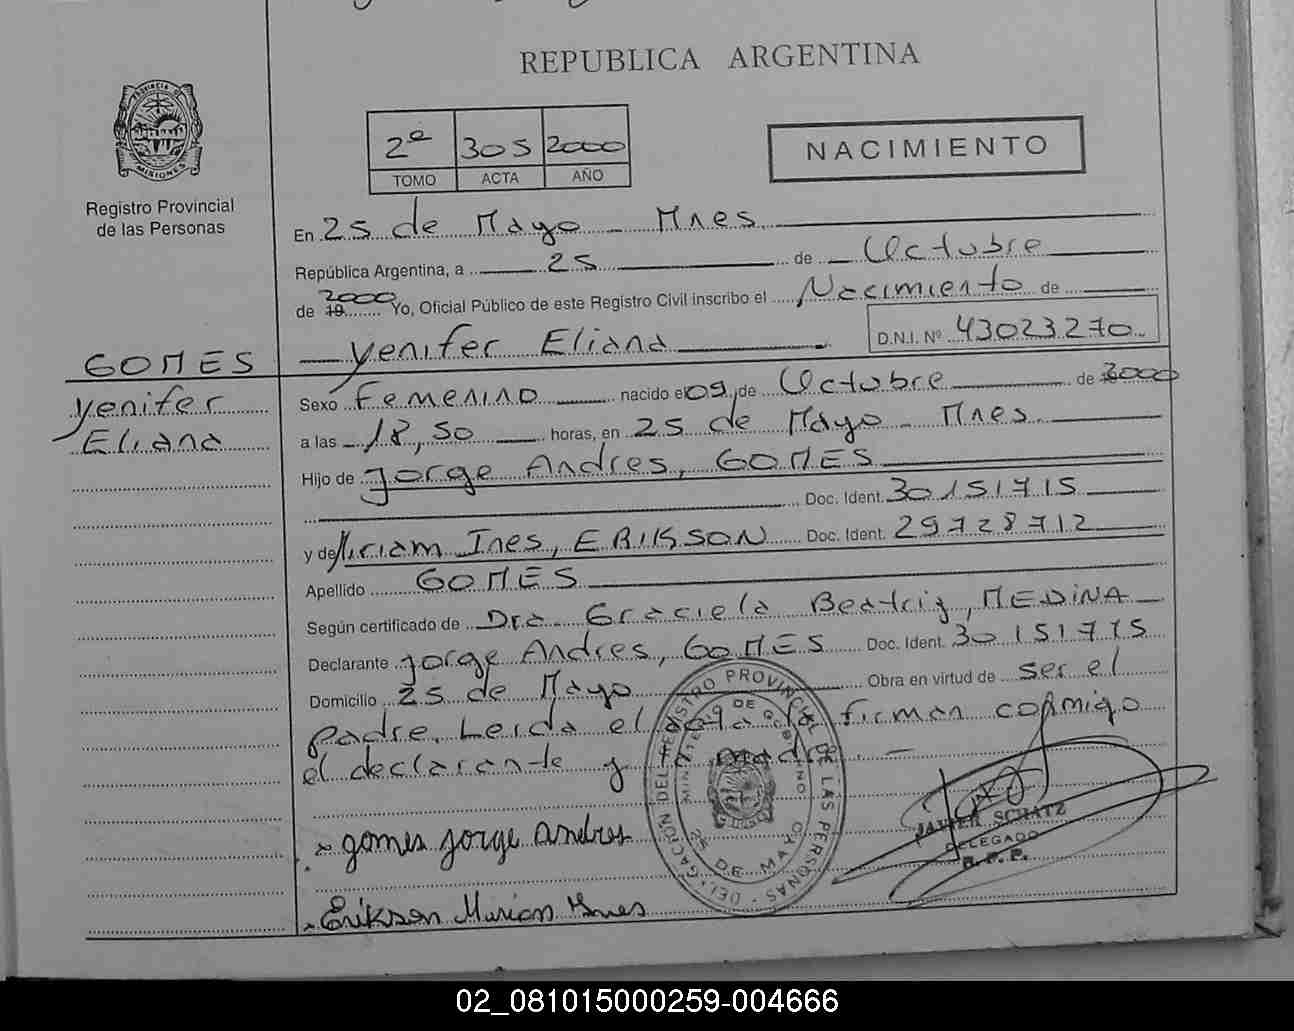 REPUBLICA ARGENTINA
PROVINCIA DE
MISIONES
Registro Provincial
de las Personas
2º 305 2000
TOMO ACTA AÑO
NACIMIENTO
En 25 de Mayo - Mnes
República Argentina, a 25 de Octubre
de 2000 Yo, Oficial Público de este Registro Civil inscribo el Nacimiento de
Yenifer Eliana D.N.I. Nº 43023270
GOMES
Yenifer
Eliana
Sexo Femenino nacido el 09 de Octubre de 2000
a las 18,50 horas, en 25 de Mayo - Mnes
Hijo de Jorge Andres, GOMES
Doc. Ident. 30151715
y de Miriam Ines, ERIKSON Doc. Ident. 29728712
Apellido GOMES
Según certificado de Dra. Graciela Beatriz, MEDINA
Declarante Jorge Andres, GOMES Doc. Ident. 30151715
Domicilio 25 de Mayo Obra en virtud de ser el
padre. Leida el acta la firman conmigo
el declarante y la madre. -
DELEGACIÓN DEL REGISTRO PROVINCIAL DE LAS PERSONAS
MINISTERIO DE GOBIERNO
25 DE MAYO
JAVIER SCHATZ
DELEGADO
R. P. P.
gomes jorge andres
Erikson Mirian Ynes
02_081015000259-004666